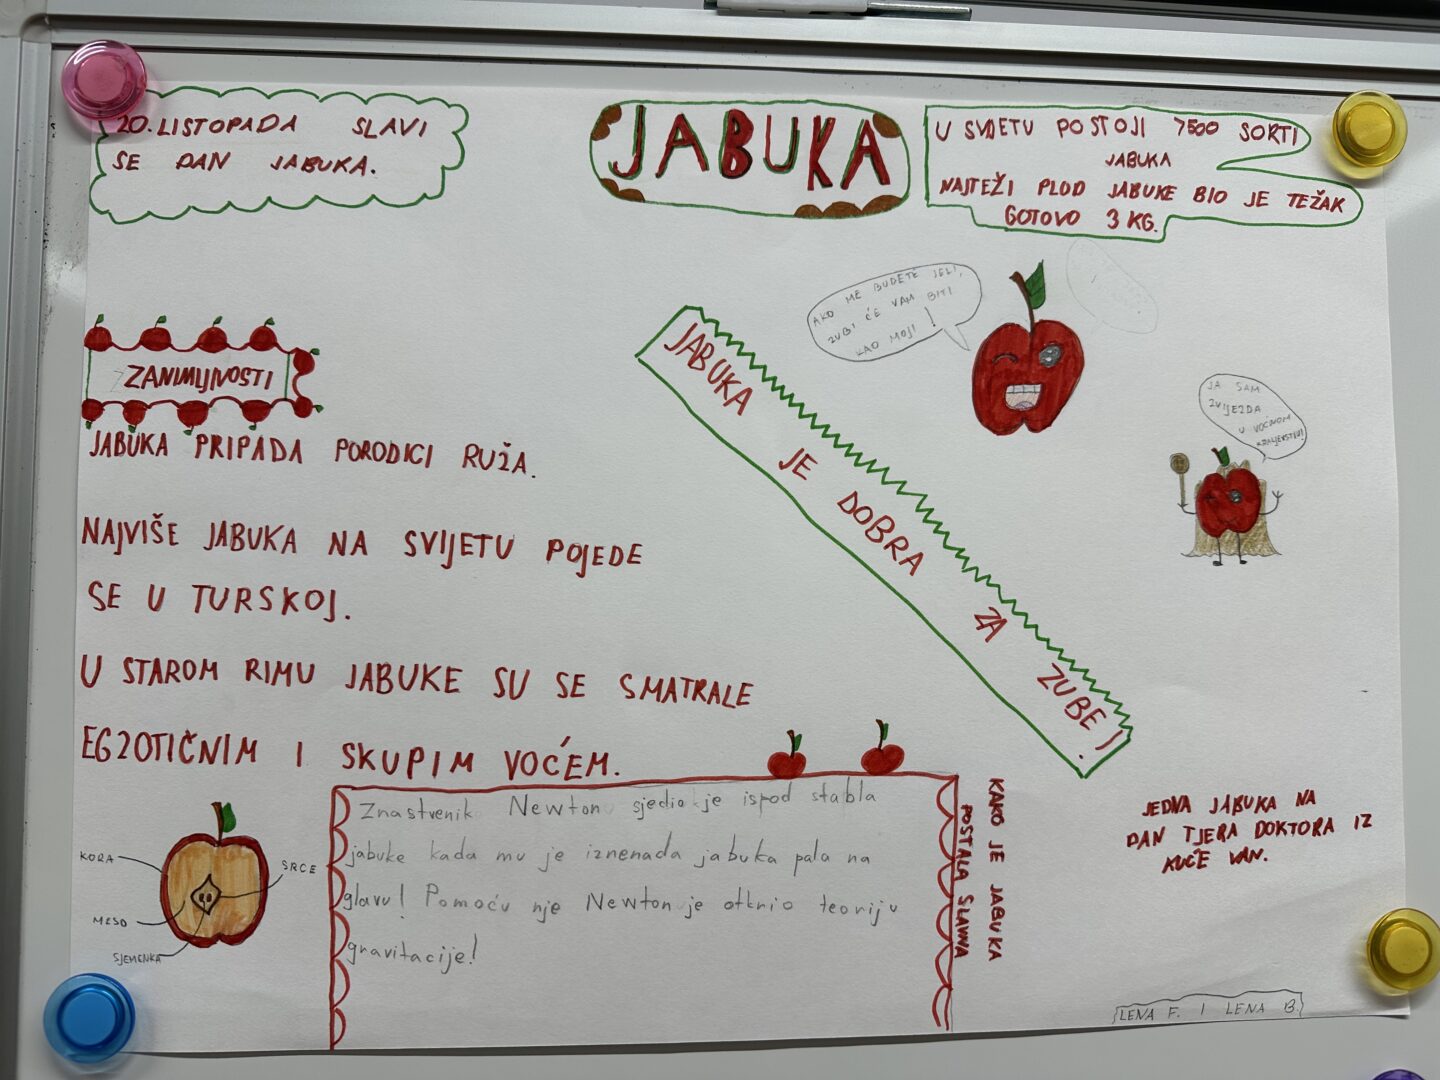 20. LISTOPADA SLAVI
SE DAN JABUKA.
JABUKA
U SVIJETU POSTOJI 7500 SORTI
JABUKA
NAJTEŽI PLOD JABUKE BIO JE TEŽAK
GOTOVO 3 KG.
AKO ME BUDETE JELI,
ZUBI ĆE VAM BITI
KAO MOJI!
JA SAM
ZVIJEZDA
U VOĆNOM
KRALJEVSTVU!
ZANIMLJIVOSTI
JABUKA PRIPADA PORODICI RUŽA.
NAJVIŠE JABUKA NA SVIJETU POJEDE
SE U TURSKOJ.
U STAROM RIMU JABUKE SU SE SMATRALE
EGZOTIČNIM I SKUPIM VOĆEM.
JABUKA JE DOBRA ZA ZUBE!
KORA
SRCE
MESO
SJEMENKA
Znastvenik Newton sjedio je ispod stabla
jabuke kada mu je iznenada jabuka pala na
glavu! Pomoću nje Newton je otkrio teoriju
gravitacije!
KAKO JE JABUKA
POSTALA SLAVNA
JEDNA JABUKA NA
DAN TJERA DOKTORA IZ
KUĆE VAN.
LENA F. I LENA B.